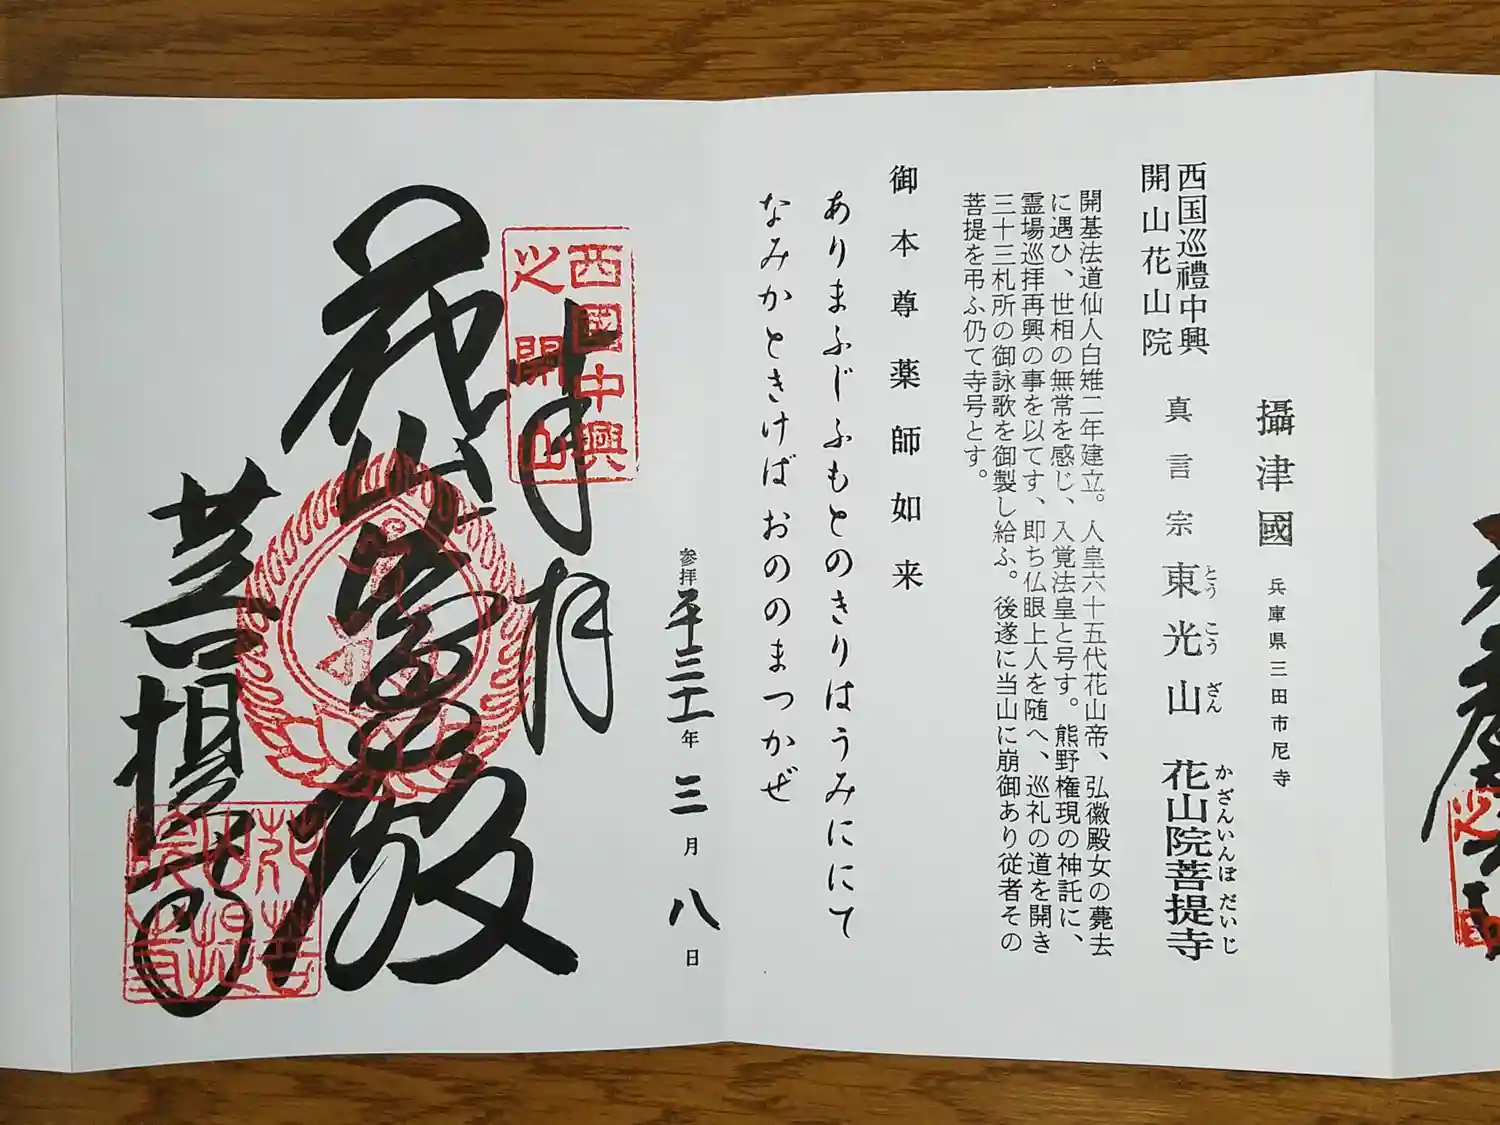 攝津國 兵庫県三田市尼寺
西国巡禮中興
開山花山院
真言宗 東光山 花山院菩提寺
とうこうざん かざんいんぼだいじ
開基法道仙人白雉二年建立。人皇六十五代花山帝、弘徽殿女の薨去
に遇ひ、世相の無常を感じ、入覚法皇と号す。熊野権現の神託に、
霊場巡拝再興の事を以てす、即ち仏眼上人を随へ、巡礼の道を開き
三十三札所の御詠歌を御製し給ふ。後遂に当山に崩御あり従者その
菩提を弔ふ仍て寺号とす。
御本尊薬師如来
ありまふじふもとのきりはうみににて
なみかときけばおののまつかぜ
参拝平三十一年三月八日
西國中興
之開山
奉拝
花山
菩提寺
花山院菩提寺